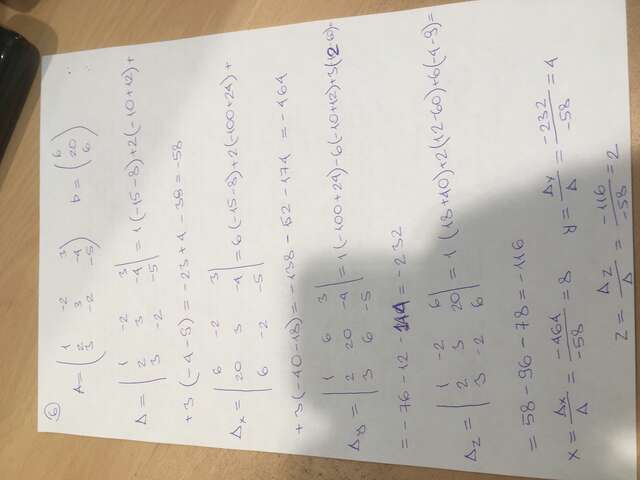 6
A = ( 1 -2 3 b = ( 6
2 3 -4 20
3 -2 -5 ) 6 )
Δ = | 1 -2 3
2 3 -4 | = 1(-15-8)+2(-10+12)+
3 -2 -5 |
+3(-4-9) = -23+4-38 = -58
Δx = | 6 -2 3
20 3 -4 | = 6(-15-8)+2(-100+24)+
6 -2 -5 |
+3(-40-18) = -138-152-174 = -464
Δy = | 1 6 3
2 20 -4 | = 1(-100+24)-6(-10+12)+3(12-60)=
3 6 -5 |
= -76-12-144 = -232
Δz = | 1 -2 6
2 3 20 | = 1(18+40)+2(12-60)+6(-4-9)=
3 -2 6 |
= 58-96-78 = -116
x = Δx/Δ = -464/-58 = 8 y = Δy/Δ = -232/-58 = 4
z = Δz/Δ = -116/-58 = 2